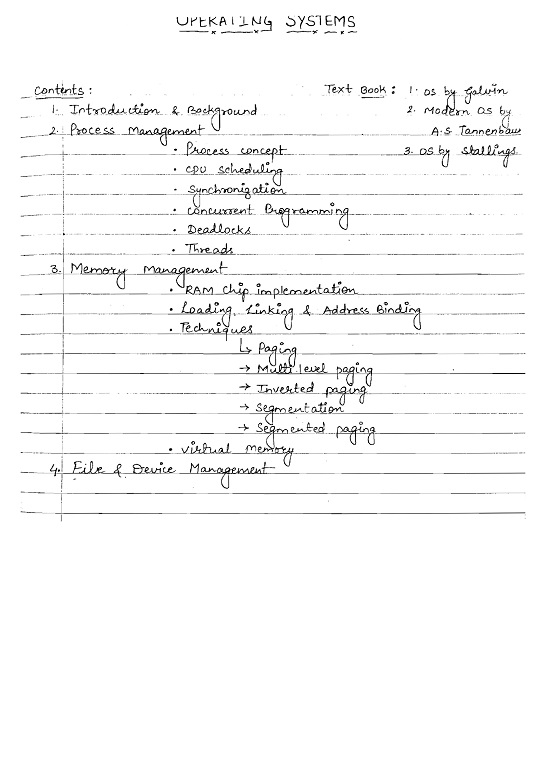 OPERATING SYSTEMS
Contents :
Text Book : 1. OS by Galvin
1. Introduction & Background
2. Modern OS by
2. Process Management
A.S Tannenbaum
• Process concept
3. OS by Stallings
• CPU scheduling
• Synchronization
• Concurrent Programming
• Deadlocks
• Threads
3. Memory Management
• RAM Chip implementation
• Loading, Linking & Address Binding
• Techniques
↳ Paging
→ Multi level paging
→ Inverted paging
→ Segmentation
→ Segmented paging
• Virtual memory
4. File & Device Management